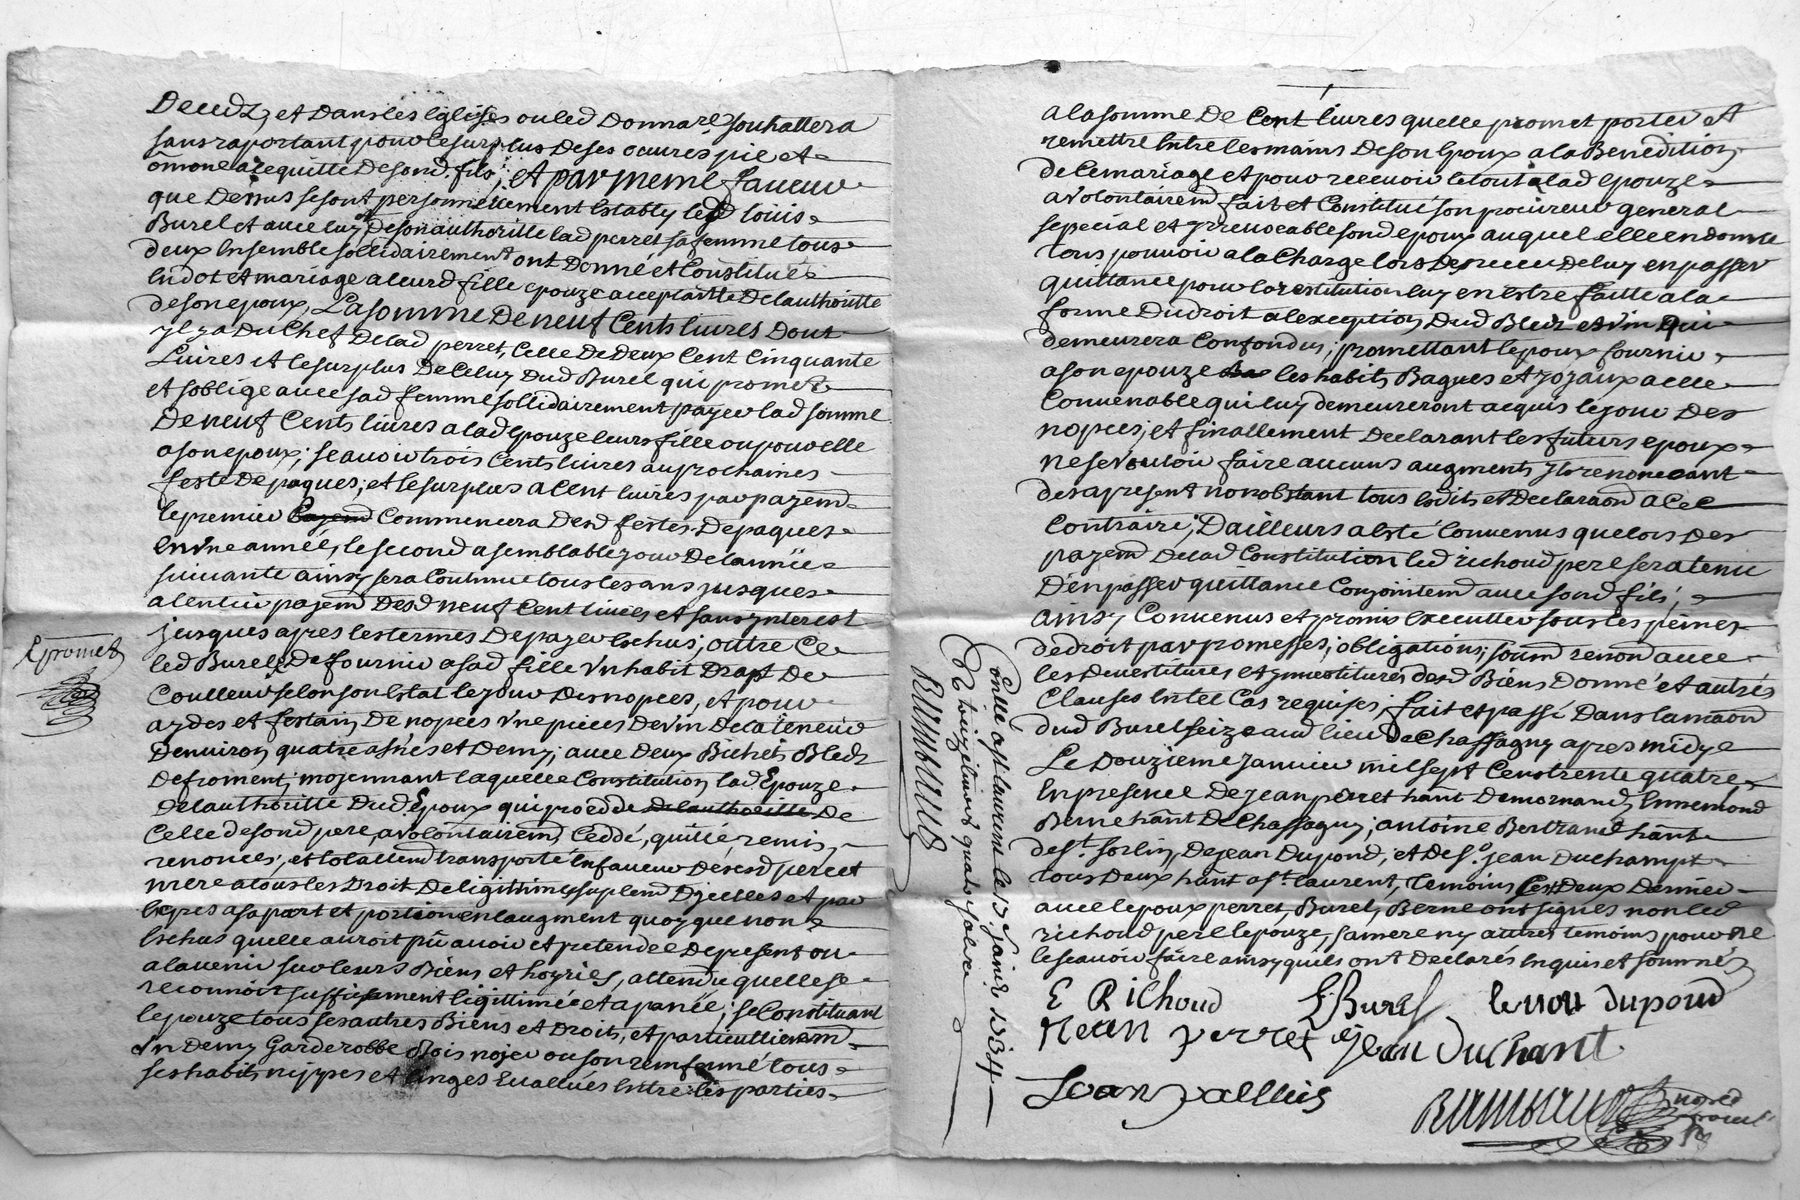 Decedz, et Dans les Eglises ou led Donnare souhattera
sans raportant pour le surplus de ses oeuvres pie et
omone a lequitte de sond. fils, et par meme faveur
que Dessus se sont personnellement Estably led louis
Burel et avec luy de son authoritte lad perret sa femme tous
deux Ensemble sollidairement ont Donné et Constitué
En dot et mariage a leurd fille epouze acceptante De lauthoritte
de son epoux, La somme De neuf Cents livres Dont
yl y a Du Chef De lad perret, Celle De Deux Cent Cinquante
Livres et le surplus De Celuy Dud Burel qui promet
et soblige avec sad femme sollidairement payer lad somme
De neuf Cents livres a lad Epouze leurs fille ou pour elle
a son epoux; scavoir trois Cents livres au prochaines
feste De paques; et le surplus a Cent livres par payemd
le premier Commencera Desd festes De paques
en une année, le second a semblable jour De lannée
suivante ainsy sera Continué tous les ans jusques
a lentier payemd Desd neuf Cent livres et sans ynterest
jusques apres les termes De payer Eschus; outre Ce
led Burel De fournir a sad fille un habit Drapt De
Coulleur selon son Estat le jour Des nopces, et pour
aydes et festain De nopces une pieces De vin De la teneur
Denviron quatre asnés et Demy; avec Deux Bichets Bledz
de froment; moyennant laquelle Constitution lad Epouze
De lauthoritte Dud Epoux qui proedde de lauthoritte De
Celle de sond pere, a volontairemd Ceddé, quitté, remis,
renoncé, et totallemd transporté En faveur De sesd perret
mere a tous les Droit De ligittime supplemd Dycelles et par
Expres a sa part et portion en laugment quoy que non
Eschus quelle auroit pû avoir et pretendre De present ou
a lavenir sur leurs Biens et hoyries, attendu quelle se
reconnoit suffisament ligittimée et apanée; se Constituant
lepouze tous ses autres Biens et Droits, et particullieremd
un Demy Garderobbe Bois noyer ou son renfermé tous
ses habits nippes et linges Evallués Entre les parties
R promet
a la somme De Cent livres quelle promet porter et
remettre Entre les mains De son Epoux a la Benedition
de le mariage et pour recevoir le tout a lad epouze
a volontairemd fait et Constitué son procureur general
special et yrrevocable sond epoux auquel elle en donne
tous pouvoir a la Charge lors De recu De luy en passer
quittance pour la restitution luy en estre faitte a la
forme Du droit a lexception Dud Bledz et vin qui
demeurera Confondus; promettant lepoux fournir
a son epouze les habits Bagues et joyaux a elle
Convenable qui luy demeureront acquis le jour Des
nopces; et finallement Declarant les futurs epoux
ne se vouloir faire aucuns augments y renoncant
des a present nonobstant tous Edits et Declaraõn a Ce
Contraire; Dailleurs a Esté Convenus que lors Des
payemd De lad Constitution led richoud pere sera tenu
D'en passer quittance Conjointemd avec sond fils,
ainsy Convenus et promis Executter sous les peines
de droit par promesses, obligations, soumd renond avec
les Devestitures et ynvestitures desd Biens Donné et autres
Clauses En tel Cas requises, fait et passé Dans la maõn
dud Burel seize aud lieu De Chassagny apres midy
Le Douzieme Janvier mil sept Cens trente quatre
En presence De jean perret hant De mornand, Ennemond
Berne hãnt De Chassagny; antoine Bertrand hãnt
de St. sorlin, De jean Dupond, et De sr. jean Duchampt
tous Deux hant a St. laurent, temoins Ces Deux Dernier
avec lepoux perret, Burel, Berne ont signés non led
richoud pere lepouze, sa mere ny autres temoins pour ne
le scavoir faire ainsy quils ont Declarés Enquis et sommés
E Richoud L Burel Dupond
Jean perret jean Duchant
Controllé a St laurent le 13 janer 1734